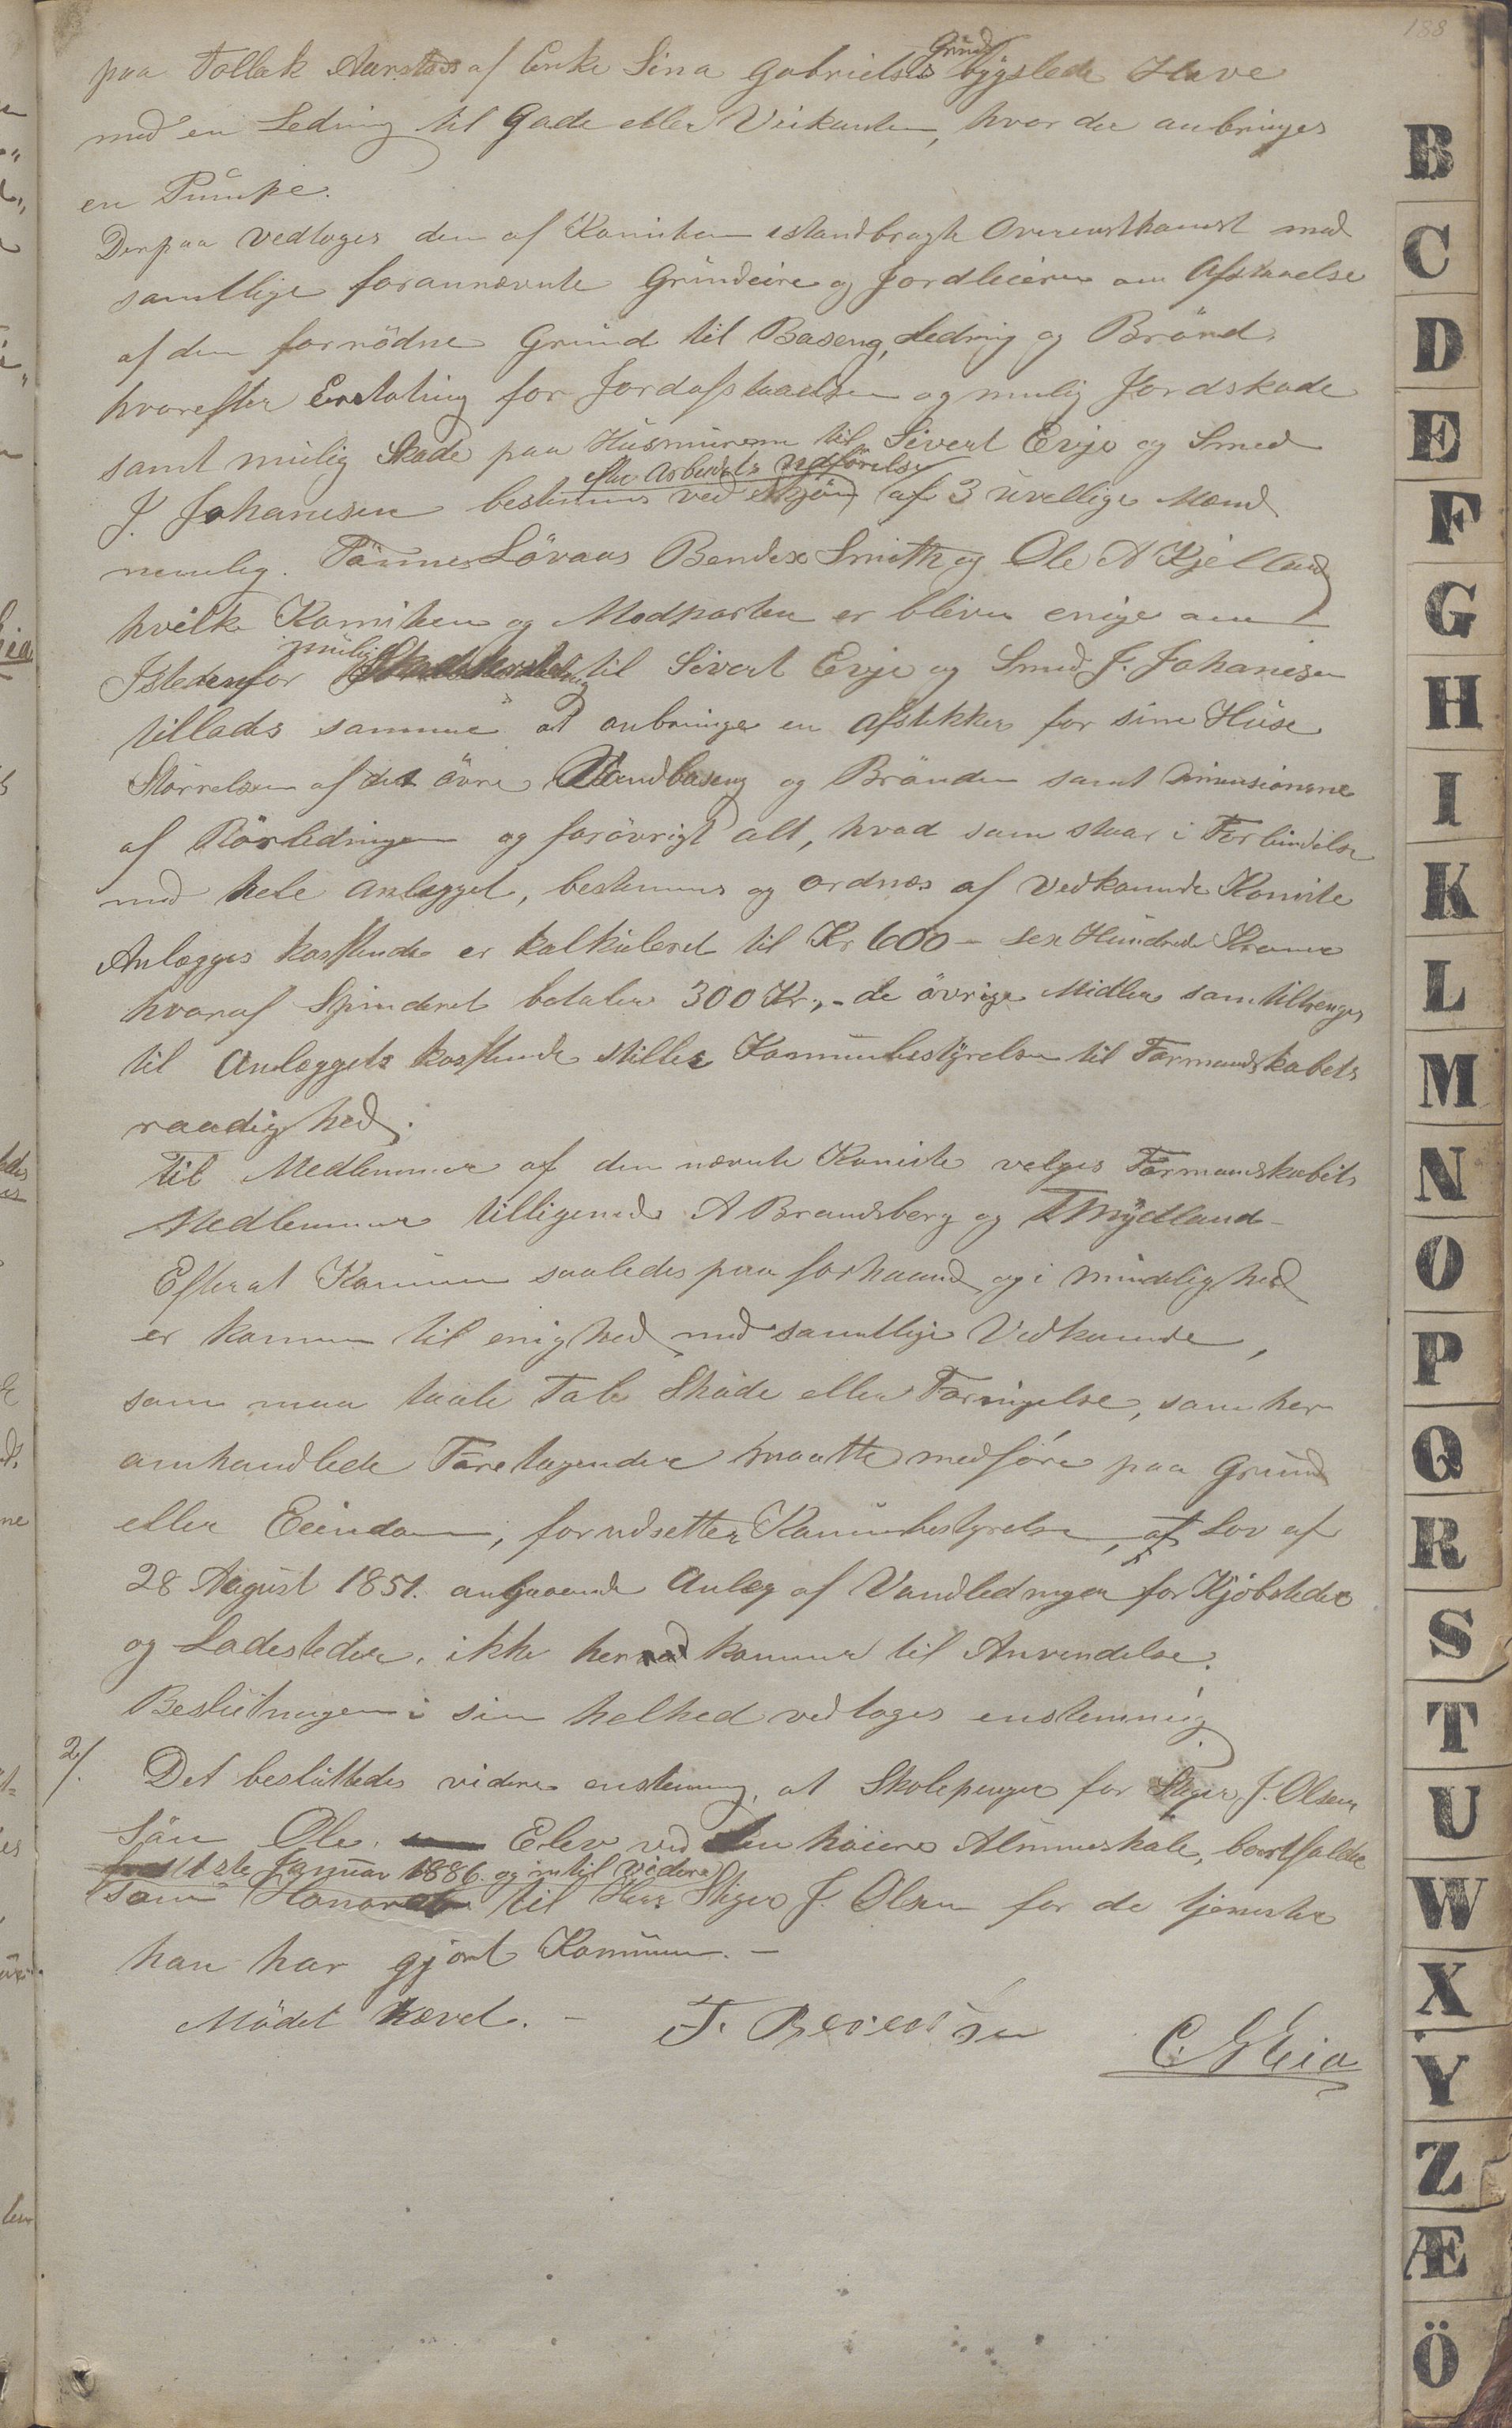 188
paa Tollak Aarstads af Enke Sina Gabrielsens Grund bygslede Have
med en Ledning til Gade eller Veikanten, hvor der anbringes
en Pumpe.
Derpaa vedtoges den af Komiteen istandbragte Overenskomst med
samtlige forannævnte Grundeire og Jordleiere om Afstaaelse
af den fornödne Grund til Baseng, Ledning og Brönd,
hvorefter Erstatning for Jordafstaaelsen og mulig Jordskade
samt mulig Skade paa Husmurene til Sivert Evje og Smed
efter Arbeidets Udförelse
J. Johanesen bestemmes ved Skjön af 3 uvillige Mænd
nemlig. Tönnes Lövaas Bendix Smith og Ole A Kjelland
hvilke Komiteen og Modparten er bleven enige om
Istedenfor mulig Skadeserstatning til Sivert Evje og Smed J. Johanesen
tillades samme at anbringe en Afstikker for sine Huse
Störrelsen af det övre Vandbaseng og Brönden samt Dimensionerne
af Rörledningen og forövrigt alt, hvad som staar i Forbindelse
med hele Anlægget, bestemmes og ordnes af vedkommende Komite
Anlægges kostende er kalkuleret til Kr 600 - sex Hundrede Kroner
hvoraf Spinderiet betaler 300 Kr,- de övrige Midler som tiltrenges
til Anlæggets kostende stiller Kommunebestyrelsen til Formandskabets
raadighed.
Til Medlemmer af den nævnte Komite velges Formanskabets
Medlemmer tilligemed A Brandsberg og T Mydland -
Efterat Kommunen saaledes paa forhaand og i Mindelighed
er kommen til enighed med samtlige Vedkommende,
som maa taale Tab Skade eller Forringelse, som her
omhandlede Foretagender maatte medföre paa Grund
eller Eiendom, forudsetter Kommunebestyrelsen, at Lov af
28 August 1851. angaaende Anlæg af Vandledninger for Kjöbsteder
og Ladesteder, ikke herved kommer til Anvendelse.
Beslutningen i sin helhed vedtoges enstemmig.
2/. Det besluttedes videre enstemmig, at Skolepenger for Stiger J. Olsens
Sön Ole. Elev ved den höiere Almueskole, bortfalder
fra 1ste Januar 1886. og intil videre
som Honorar til Herr Stiger J. Olsen for de tjenester
han har gjort Kommunen. -
Mödet hævet. - T. Berentsen C. G Eia
B
C
D
E
F
G
H
I
K
L
M
N
O
P
Q
R
S
T
U
W
X
Y
Z
Æ
Ö